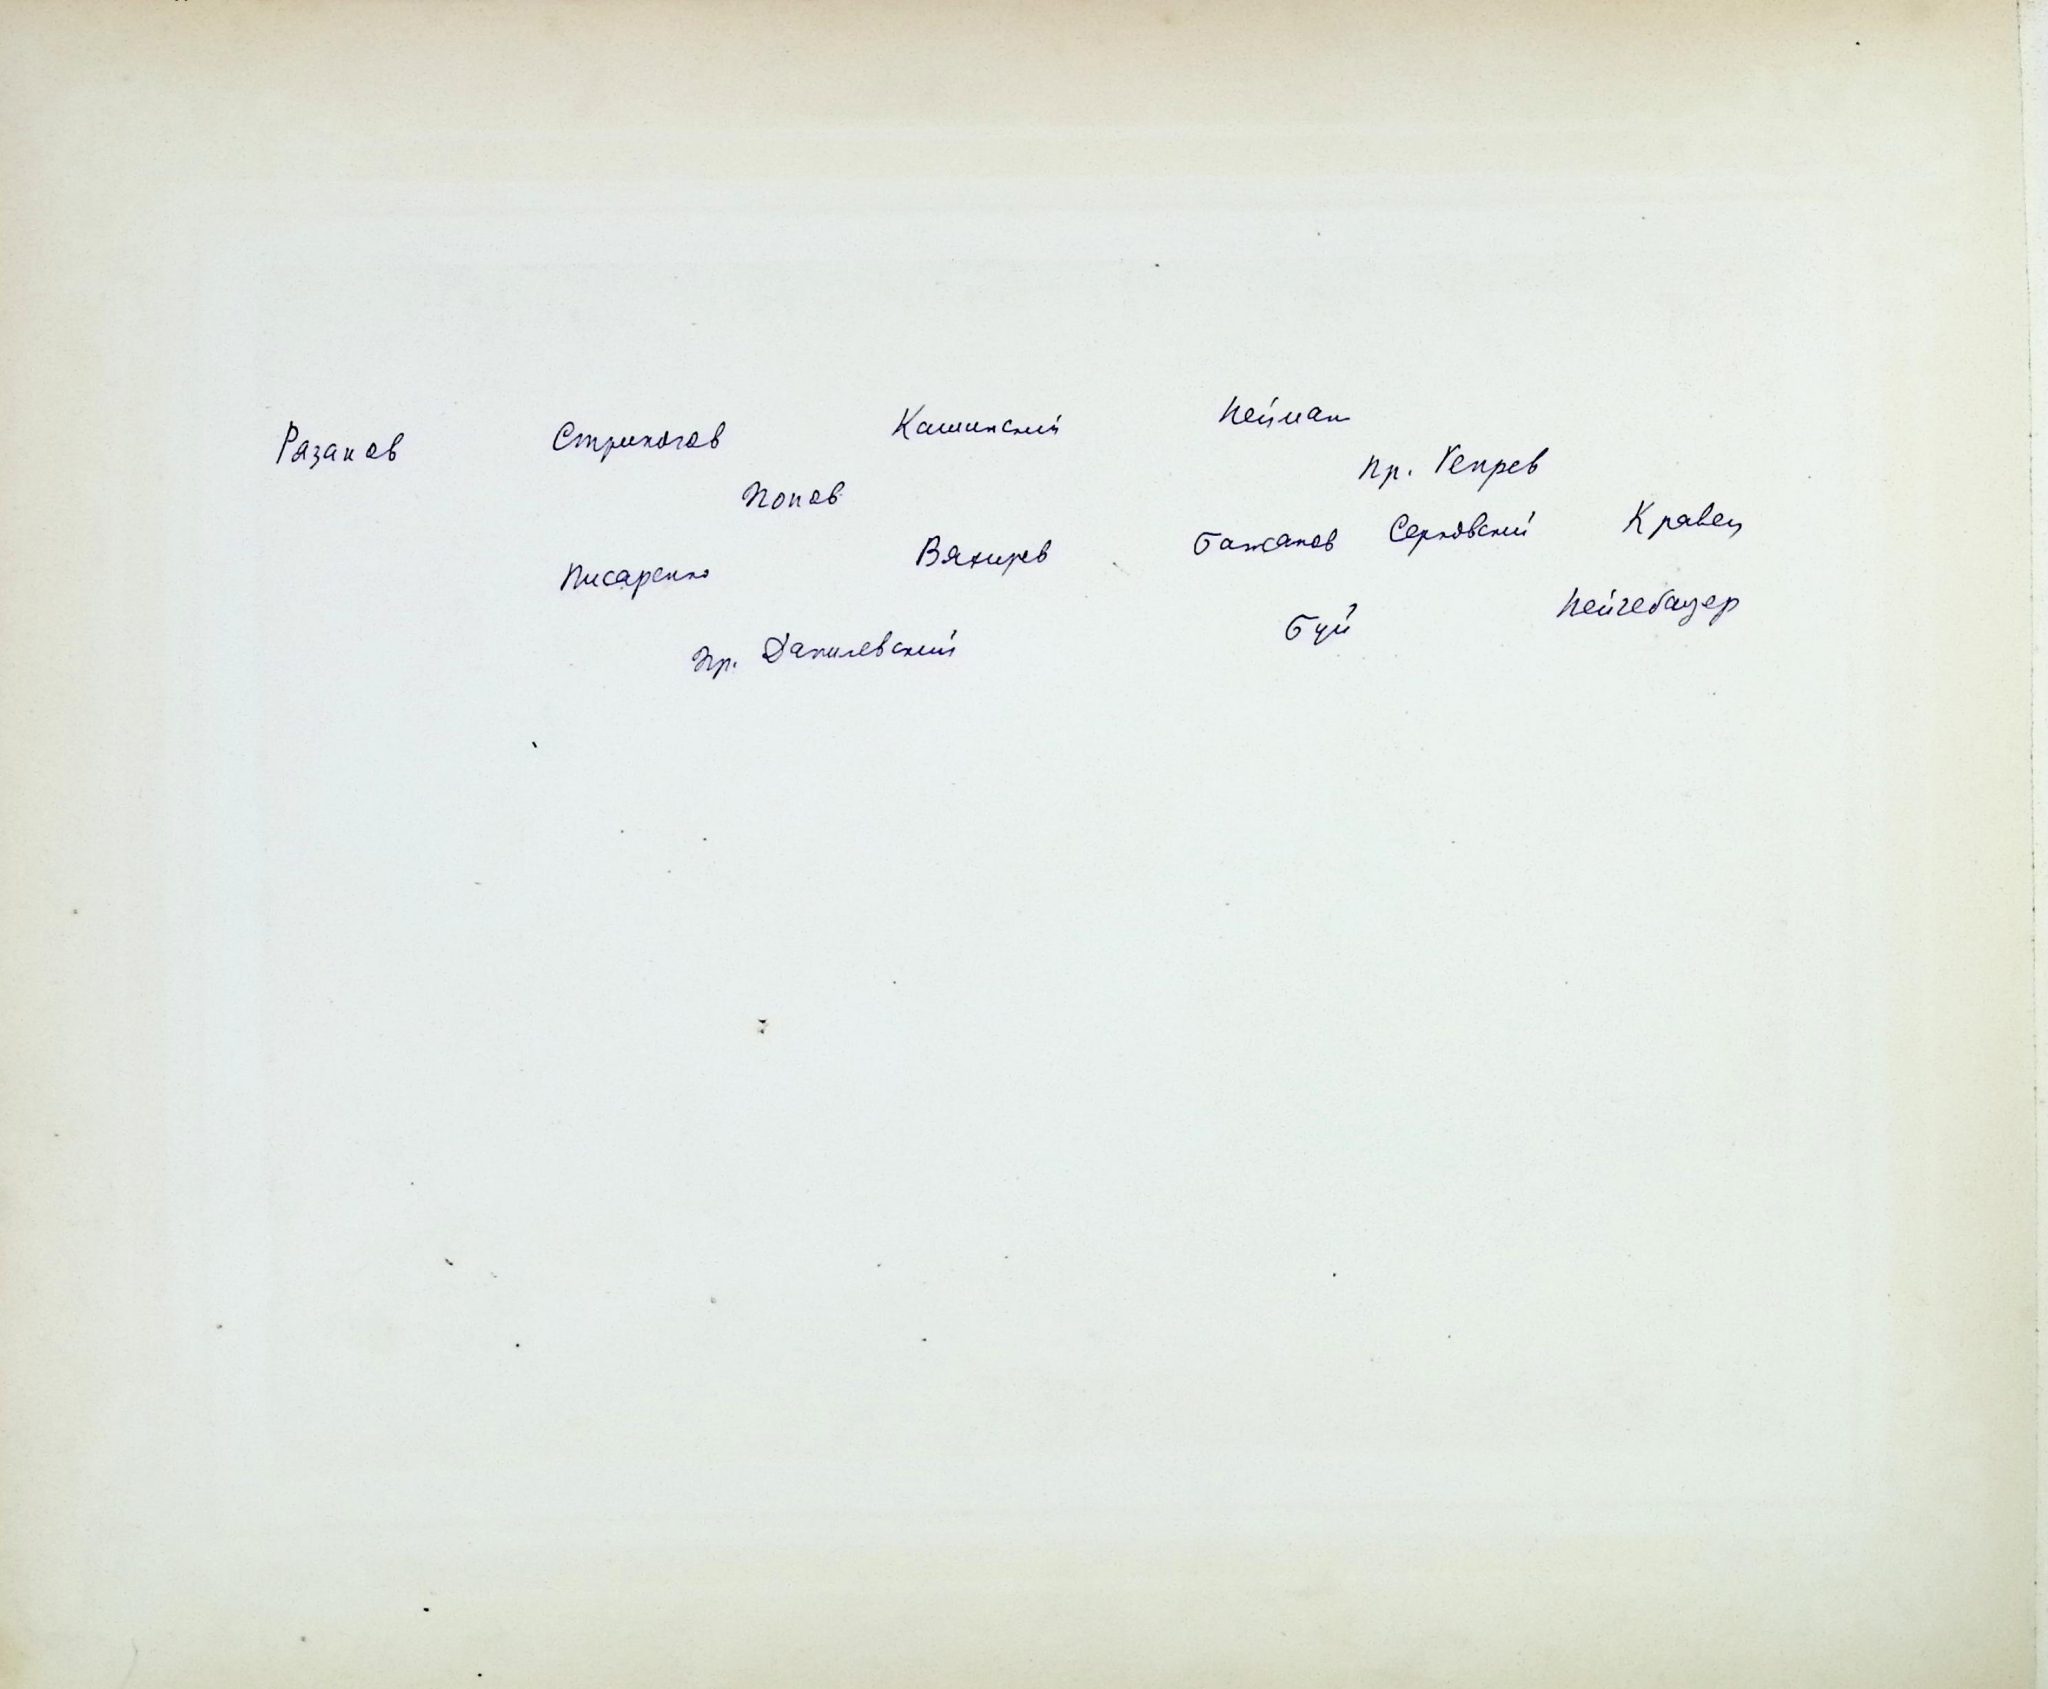 Разанов Стриногов Кашинский Нейман
пр. Репрев
Попов
Писаренко Вяхирев Бажанов Серковский Кравец
пр. Данилевский Буй Нейгебауер